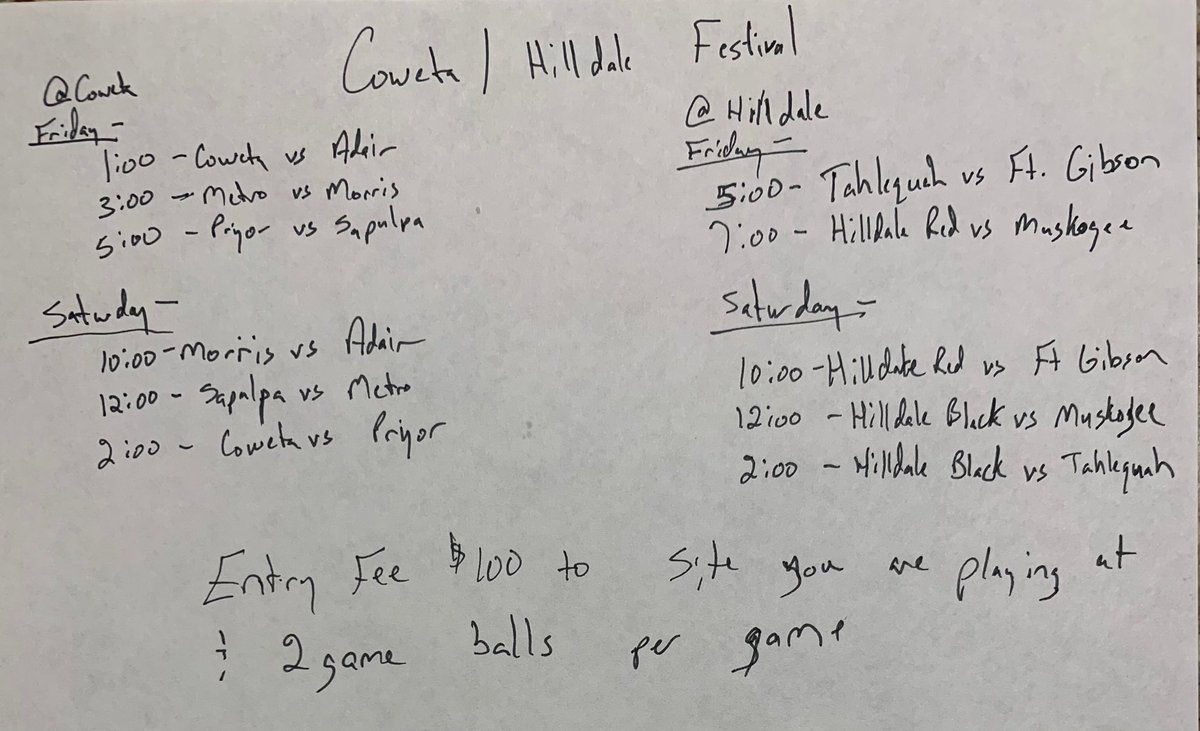 Coweta / Hilldale Festival
@Coweta
Friday -
1:00 - Coweta vs Adair
3:00 - Metro vs Morris
5:00 - Pryor vs Sapulpa
Saturday -
10:00 - Morris vs Adair
12:00 - Sapulpa vs Metro
2:00 - Coweta vs Pryor
@ Hilldale
Friday -
5:00 - Tahlequah vs Ft. Gibson
7:00 - Hilldale Red vs Muskogee
Saturday -
10:00 - Hilldale Red vs Ft Gibson
12:00 - Hilldale Black vs Muskogee
2:00 - Hilldale Black vs Tahlequah
Entry Fee $100 to site you are playing at
& 2 game balls per game